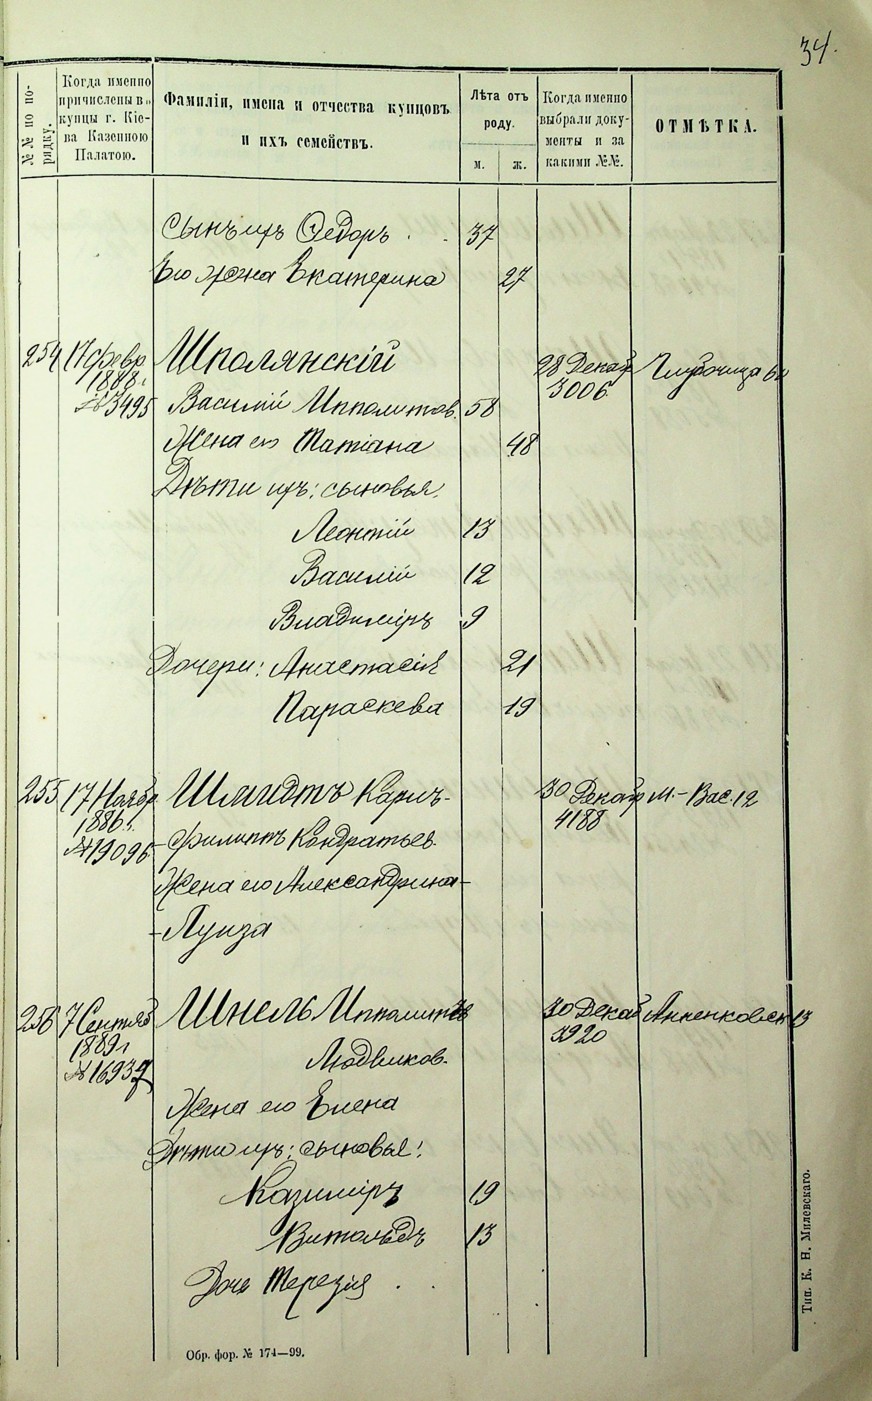 34.
№№ по порядку.
Когда именно
причислены въ
купцы г. Кіе-
ва Казенною
Палатою.
Фамиліи, имена и отчества купцовъ
и ихъ семействъ.
Лѣта отъ
роду.
м.
ж.
Когда именно
выбрали доку-
менты и за
какими №№.
ОТМѢТКА.
Сынъ ихъ Ѳедоръ . . 37
Его жена Екатерина 27
254 17 февр Шполянскій 28 Декаб Глубочица
1888 г. 3006
№ 3495 Василій Ипполитов. 58
Жена его Татіана 48
Дѣти ихъ: сыновья:
Леонтій 13
Василій 12
Владиміръ 9
Дочери: Анастасія 21
Параскева 19
255 17 Ноябр Шмидтъ Карлъ- 30 Декабр М.-Вас. 12
1886 г. 4188
№ 19096 -Филиппъ Кондратьев.
Жена его Александрина-
-Луиза
256 7 Сентяб Шнель Ипполитъ 30 Декаб Анненковск 13
1889 г 3920
Людвиков.
№ 16939
Жена его Елена
Дѣти ихъ: сыновья:
Казиміръ 19
Витольдъ 13
Дочь Терезія . .
Обр. фор. № 174—99.
Тип. К. Н. Милевскаго.